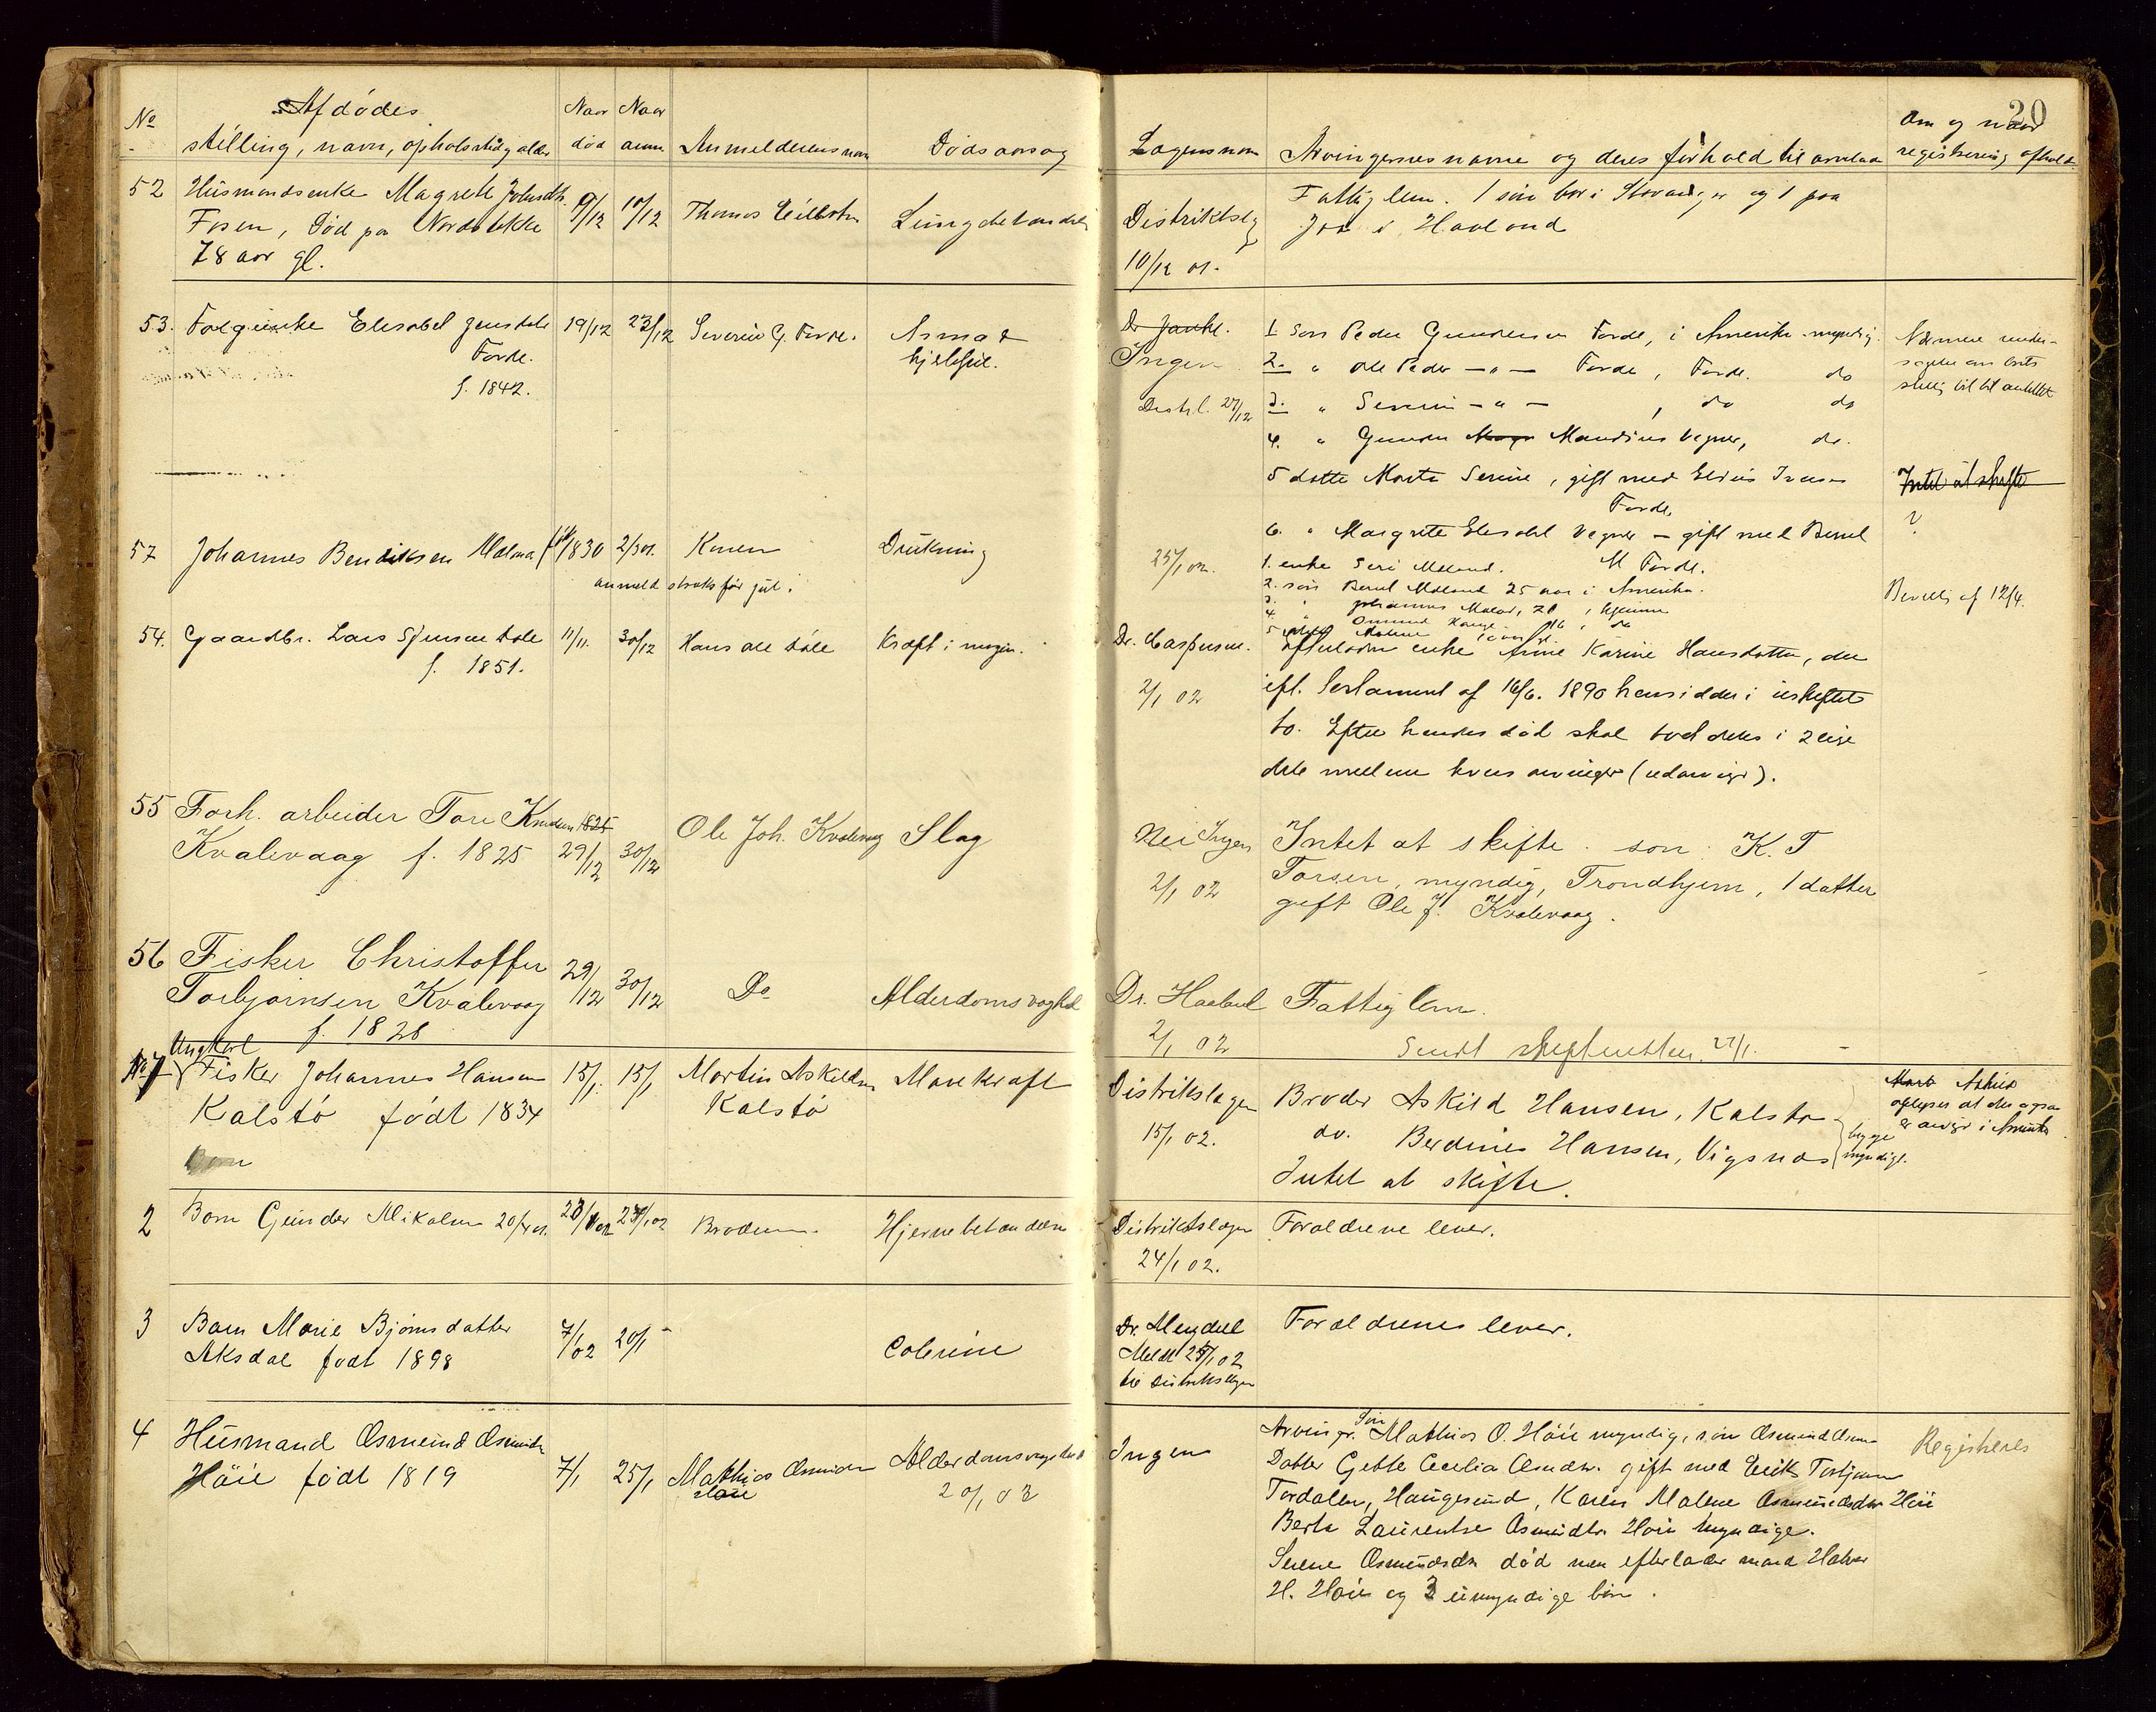 20
No
Afdødes
stilling, navn, opholdssted og alder
Naar død
Naar anm
Anmelderens navn
Dødsaarsag
Lægens navn
Arvingernes navne og deres forhold til
Om og naar registrering afholdt
52 Husmandsenke Magrete
Fosen, Død paa
78 aar gl.
9/12
10/12
Thomas
Lungebetændelse
Distriktslg
10/12 01.
Fattiglem. 1 søn bor i Stavanger og 1 paa
i Haaland
53. Elisabet Jensdatr
Førde.
f. 1842.
19/12
23/12
Severin G. Førde.
Asma &
hjertefeil.
Dr
Ingen
Distrl. 27/12
1 søn Peder Gundersen Førde, i Amerika myndig.
2. " Ole Peder — " — Førde, Førde. do
3. " Severin — " — , do do
4. " Gunder Maudius Vegner, do.
5 datter Marta Serine, gift med Elias Iversen
Førde,
6. " Margrete Elisabet Vegner — gift med Bernt
M Førde.
Nærmere under-
Intet at skifte
?
57 Johannes Bendiksen
1830
Konen
anmeldt straks før jul.
Drukning
25/1 02.
1. enke Seri Meland.
2. søn Bernt Meland 25 aar i Amerika.
Bevill. af 12/4.
54. Gaardbr. Lars
f. 1851.
11/11.
30/12
Hans
Kræft i
Dr. Caspersen.
2/1 02
efterlader enke Anne Karine Hansdatter, der
ifl. testament af 16/6. 1890 hensidder i uskiftet
bo. Efter hendes død skal boet deles i 2 lige
dele mellem hvers arvinger (udarvinger).
55 Forh. arbeider Tore Knudsen 1825
Kvalevaag f. 1825
29/12
30/12
Ole Joh. Kvalevaag
Slag
Nei Ingen
2/1 02
Intet at skifte. søn: K. T
Torsen, myndig, Trondhjem, 1 datter
gift Ole J. Kvalevaag.
56 Fisker Christoffer
Torbjørnsen Kvalevaag
f. 1828
29/12
30/12
Do
Alderdomssvaghed
Dr. Haaland
2/1 02
Fattiglem.
Sendt skifteretten. 27/1.
No 1
Ungkarl
Fisker Johannes Hansen
Kalstø født 1834
15/1.
15/1
Martin Askildsen
Kalstø
Mavekræft
Distrikslægen
15/1 02.
Broder Askild Hansen, Kalstø
do. Berdines Hansen, Vigsnæs
begge myndige.
Intet at skifte.
oplyser at der ogsaa
er arvgr i Amerika
2 Barn Gunder Mikalsen 20/4 01.
Broderen.
Hjernebetændelse
Distriktslægen
24/1 02.
Forældrene lever.
3 Barn Marie Bjørnsdatter
Aksdal født 1898
7/1 02
20/1
Colerine
Dr. Meydell
Meldt 25/1 02
til Distriktslægen
Forældrenes lever.
4 Husmand Osmund Osmundsen
Høie født 1819
7/1
25/1
Mathias Osmundsen
Høie
Alderdomssvaghed
Ingen
Arvinger. Søn Mathias O. Høie myndig, søn Osmund Osmundsen
Datter Gjette Cecilia Osmdtr. gift med Erik Torbjørnsen
Tordalen, Haugesund, Karen Malene Osmundsdtr Høie
Berta Laurentse Osmundtr. Høie myndige.
Serene Osmundsdtr død men efterlader mand Halvor
H. Høie og 3 umyndige børn.
Registreres